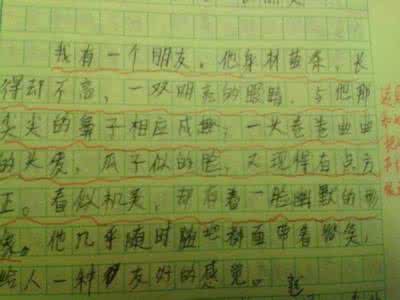 我有一个朋友。他身材苗条，长
得却不高，一双明亮的眼睛，与他那
尖尖的鼻子相应成趣；一头卷卷曲曲
的头发，瓜子似的脸，又现得有点方
正。看似机美，却有着一脸幽默的形
象。他几乎随时随地都面带着微笑，
给人一种友好的感觉。